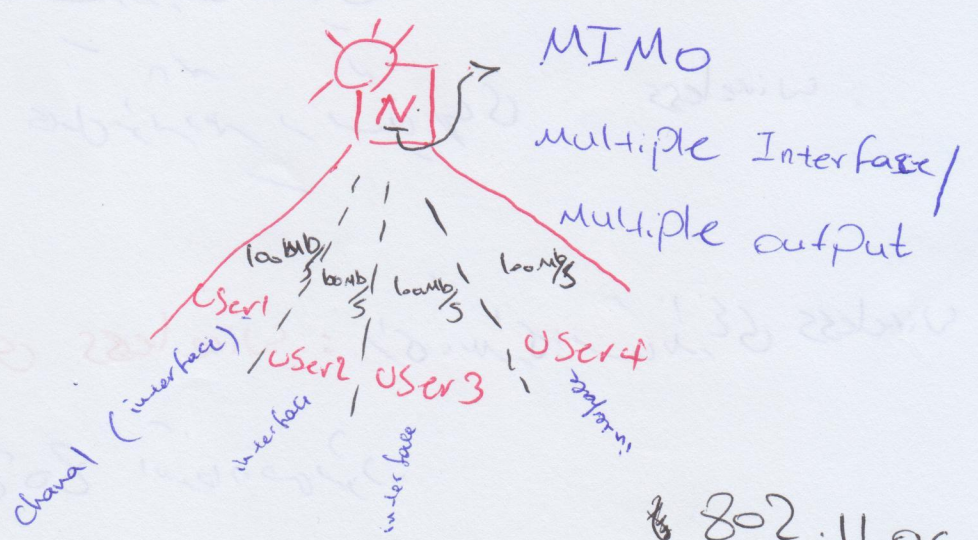 MIMO
N
Multiple Interface/
Multiple output
100Mb/s
100Mb/s
100Mb/s
100Mb/s
User1
User2
User3
User4
Chanal (interface)
interface
interface
interface
802.11